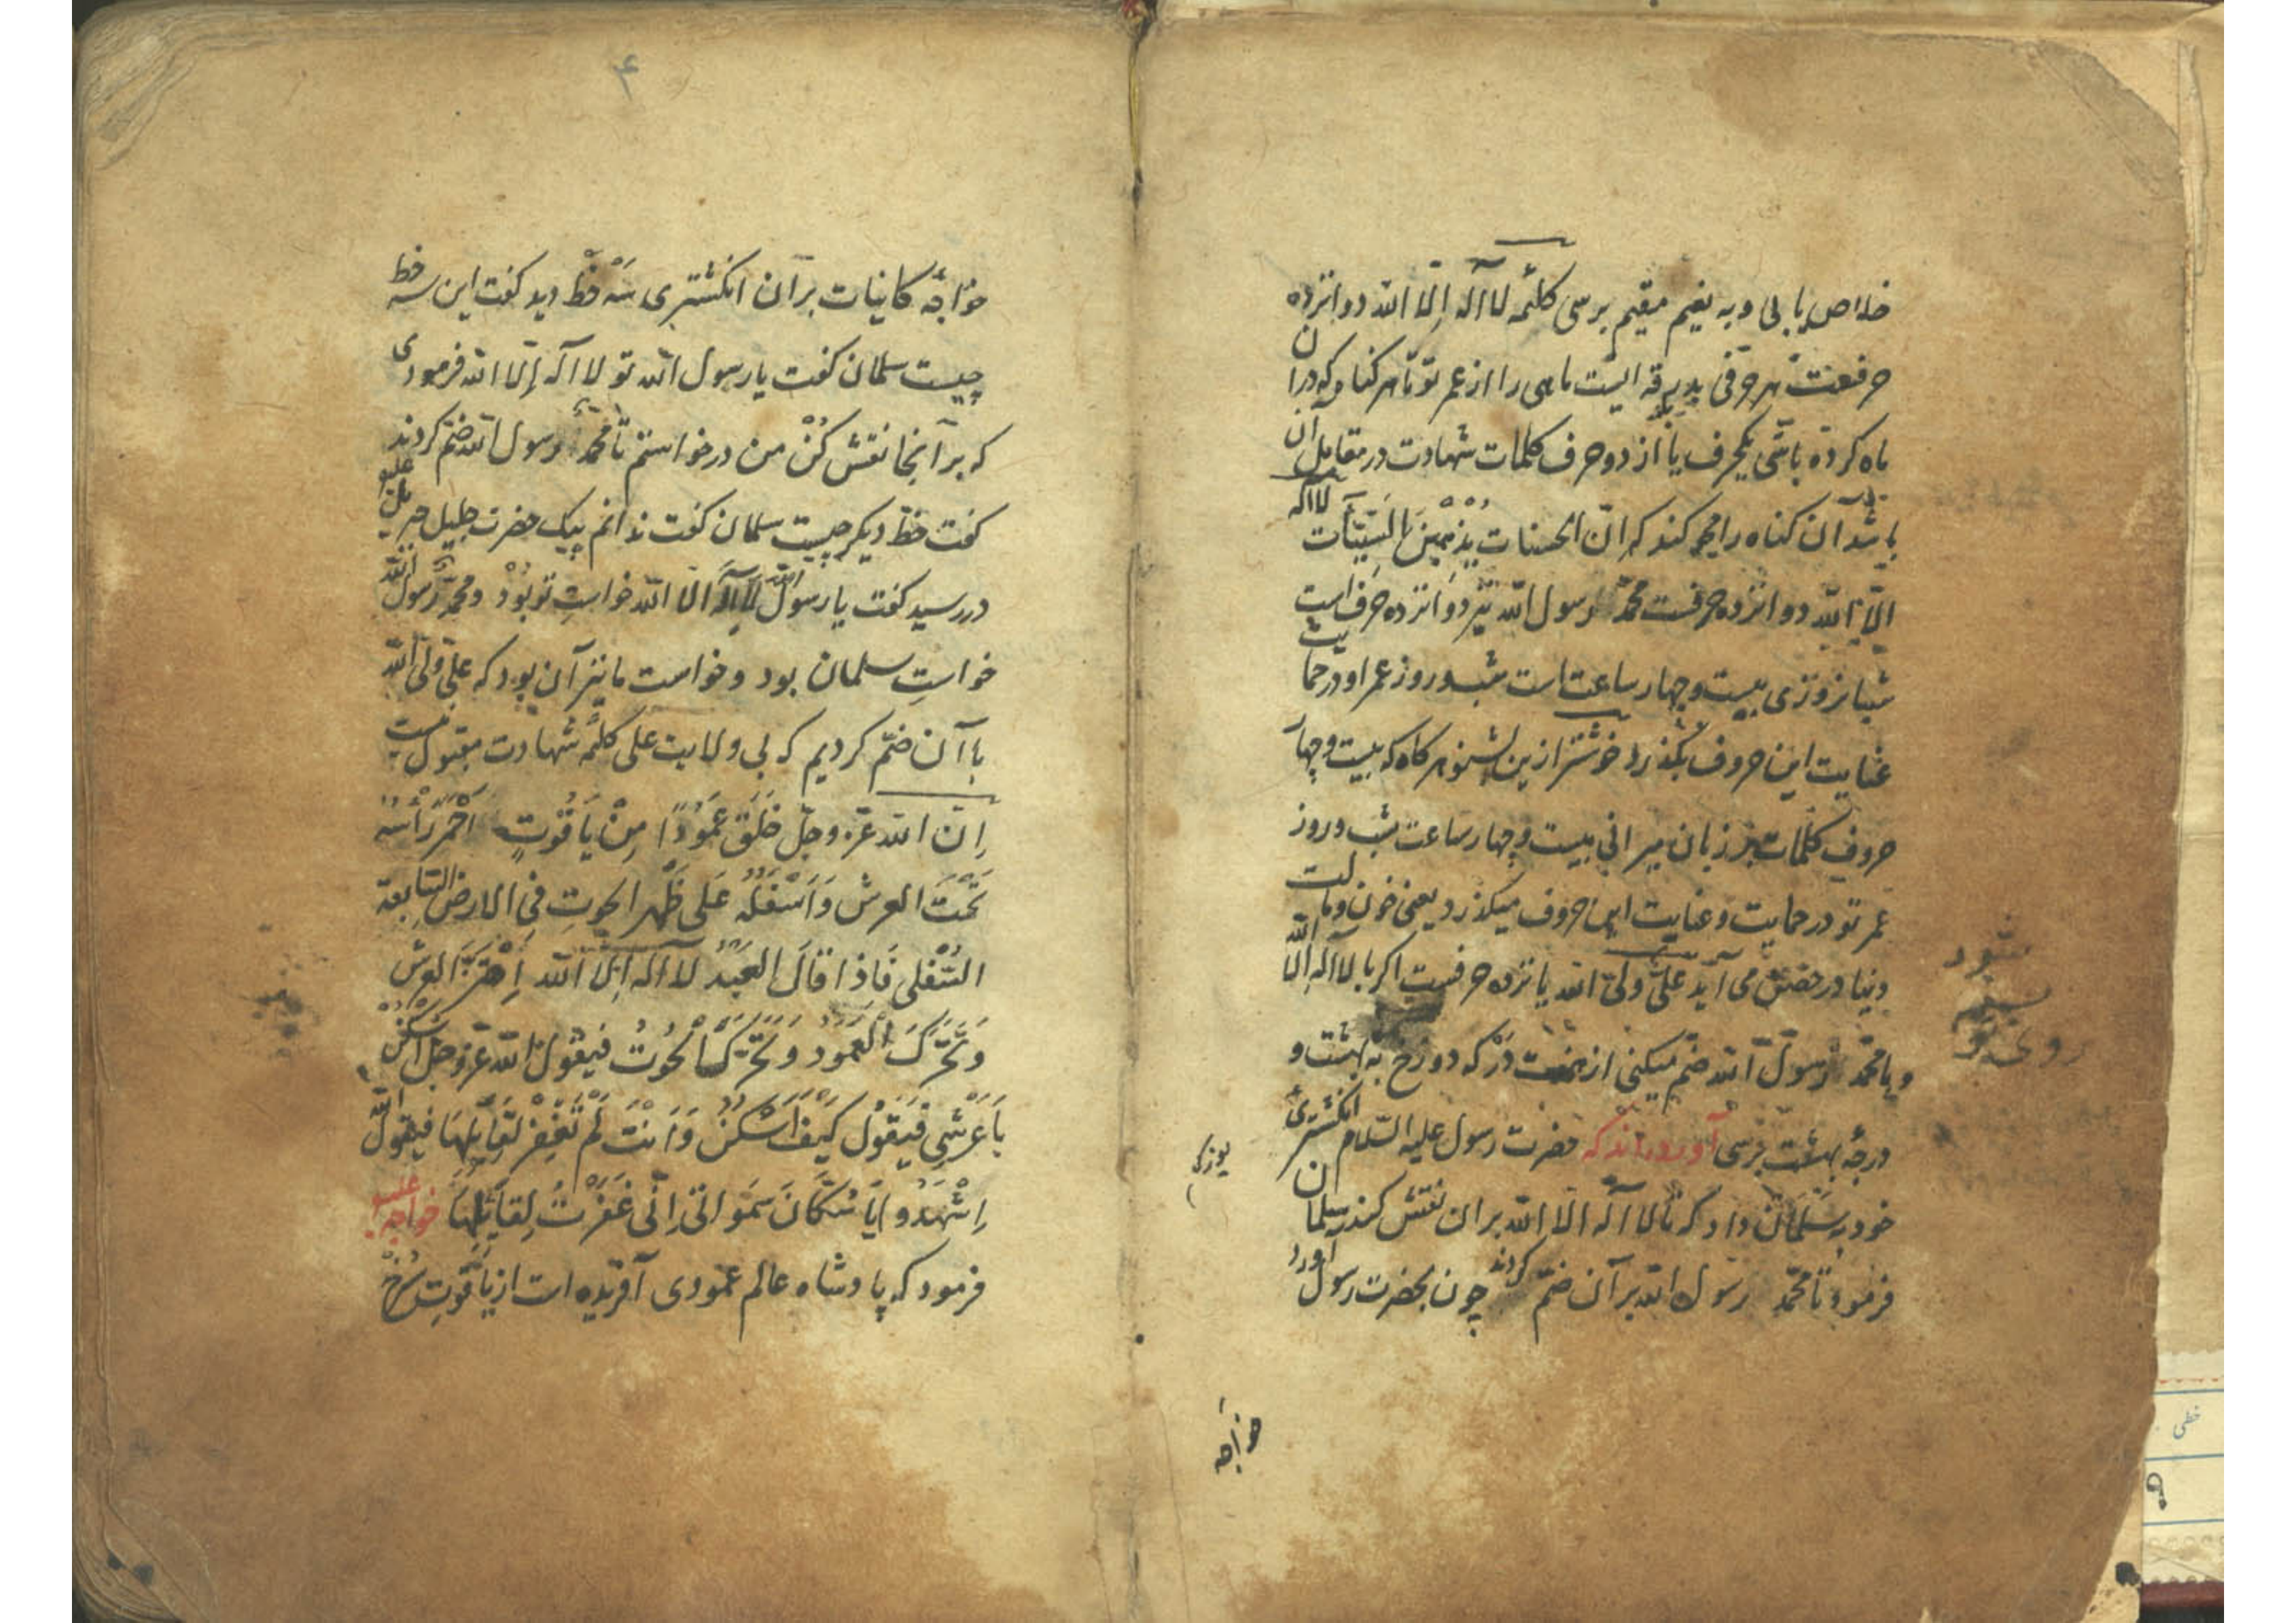 خلاص یابی و به نعیم مقیم برسی کلمهٔ لا اله الا الله دوانزده
حرفست هر حرفی بدرقه ایست ماهی را از عمر تو تا هر کناه که در آن
ماه کرده باشی یکحرف یا از دو حرف کلمات شهادت در مقابل آن
باشد آن کناه را محو کند که انّ الحسنات یُذْهِبْنَ السیّئات لا اله
الّا الله دوانزده حرفست محمّد رسول الله نیز دوانزده حرف است
شبانروزی بیست و چهار ساعت است شب و روز عمر او در حمایت
عنایت این حروف بکذرد خوشتر ازین بشنو هر کاه که بیست و چهار
حروف کلمات بر زبان میرانی بیست و چهار ساعت شب و روز
عمر تو در حمایت و عنایت این حروف میکذرد یعنی خون و مالت
در حصن می آید علیّ ولیّ الله پانزده حرفست اکر با لا اله الا الله
و با محمّد رسول الله ضمّ میکنی از هفت درکه دوزخ به هشت و
درجهٔ بهشت برسی آورده‌اند که حضرت رسول علیه السّلام انکشتریٔ
خود به سلمان داد که تا لا اله الا الله بر آن نقش کند سلمان
فرمود تا محمّد رسول الله بر آن ضمّ کردند چون بحضرت رسول آورد
شود
روی تو
خواجه
۴
خواجهٔ کاینات بر آن انکشتری سه خطّ دید کفت این سه خط
چیست سلمان کفت یا رسول الله تو لا اله إلّا الله فرمودی
که بر آنجا نقش کُنْ من درخواستم تا محمّد رسول الله ضمّ کردند
کفت خطّ دیکر چیست سلمان کفت ندانم پیک حضرت جلیل جبرئیل علیه
در رسید کفت یا رسول الله لا اله الّا الله خواستِ تو بود و محمّد رسول الله
خواستِ سلمان بود و خواست ما نیز آن بود که علیّ ولیّ الله
با آن ضمّ کردیم که بی ولایت علی کلمهٔ شهادت مقبول نیست
اِنّ الله عزّ وجلّ خَلَقَ عَمُودًا مِنْ یَاقُوتٍ اَحْمَرَ رَأْسُهُ
تَحْتَ العرش وَ اَسْفَلُهُ عَلی ظَهْر الحوتِ فِی الارض السّابعة
السُّفْلی فَاِذا قالَ العَبْدُ لا اله الّا الله اِهْتَزَّ العرش
وَ تَحَرَّکَ الْعَمُودُ وَ تَحَرَّکَ الْحُوتُ فَیَقُولُ الله عزّ وجلّ اُسْکُنْ
یَا عَرْشِی فَیَقُولُ کَیْفَ اَسْکُنُ وَ اَنْتَ لَمْ تَغْفِرْ لِقَائِلِهَا فَیَقُولُ الله
اِشْهَدُوا یَا سُکَّانَ سَمَوَاتی اِنّی غَفَرْتُ لِقَائِلِهَا خواجه علیه
فرمود که پادشاه عالم عمودی آفریده است از یاقوتِ سُرخْ
خطی